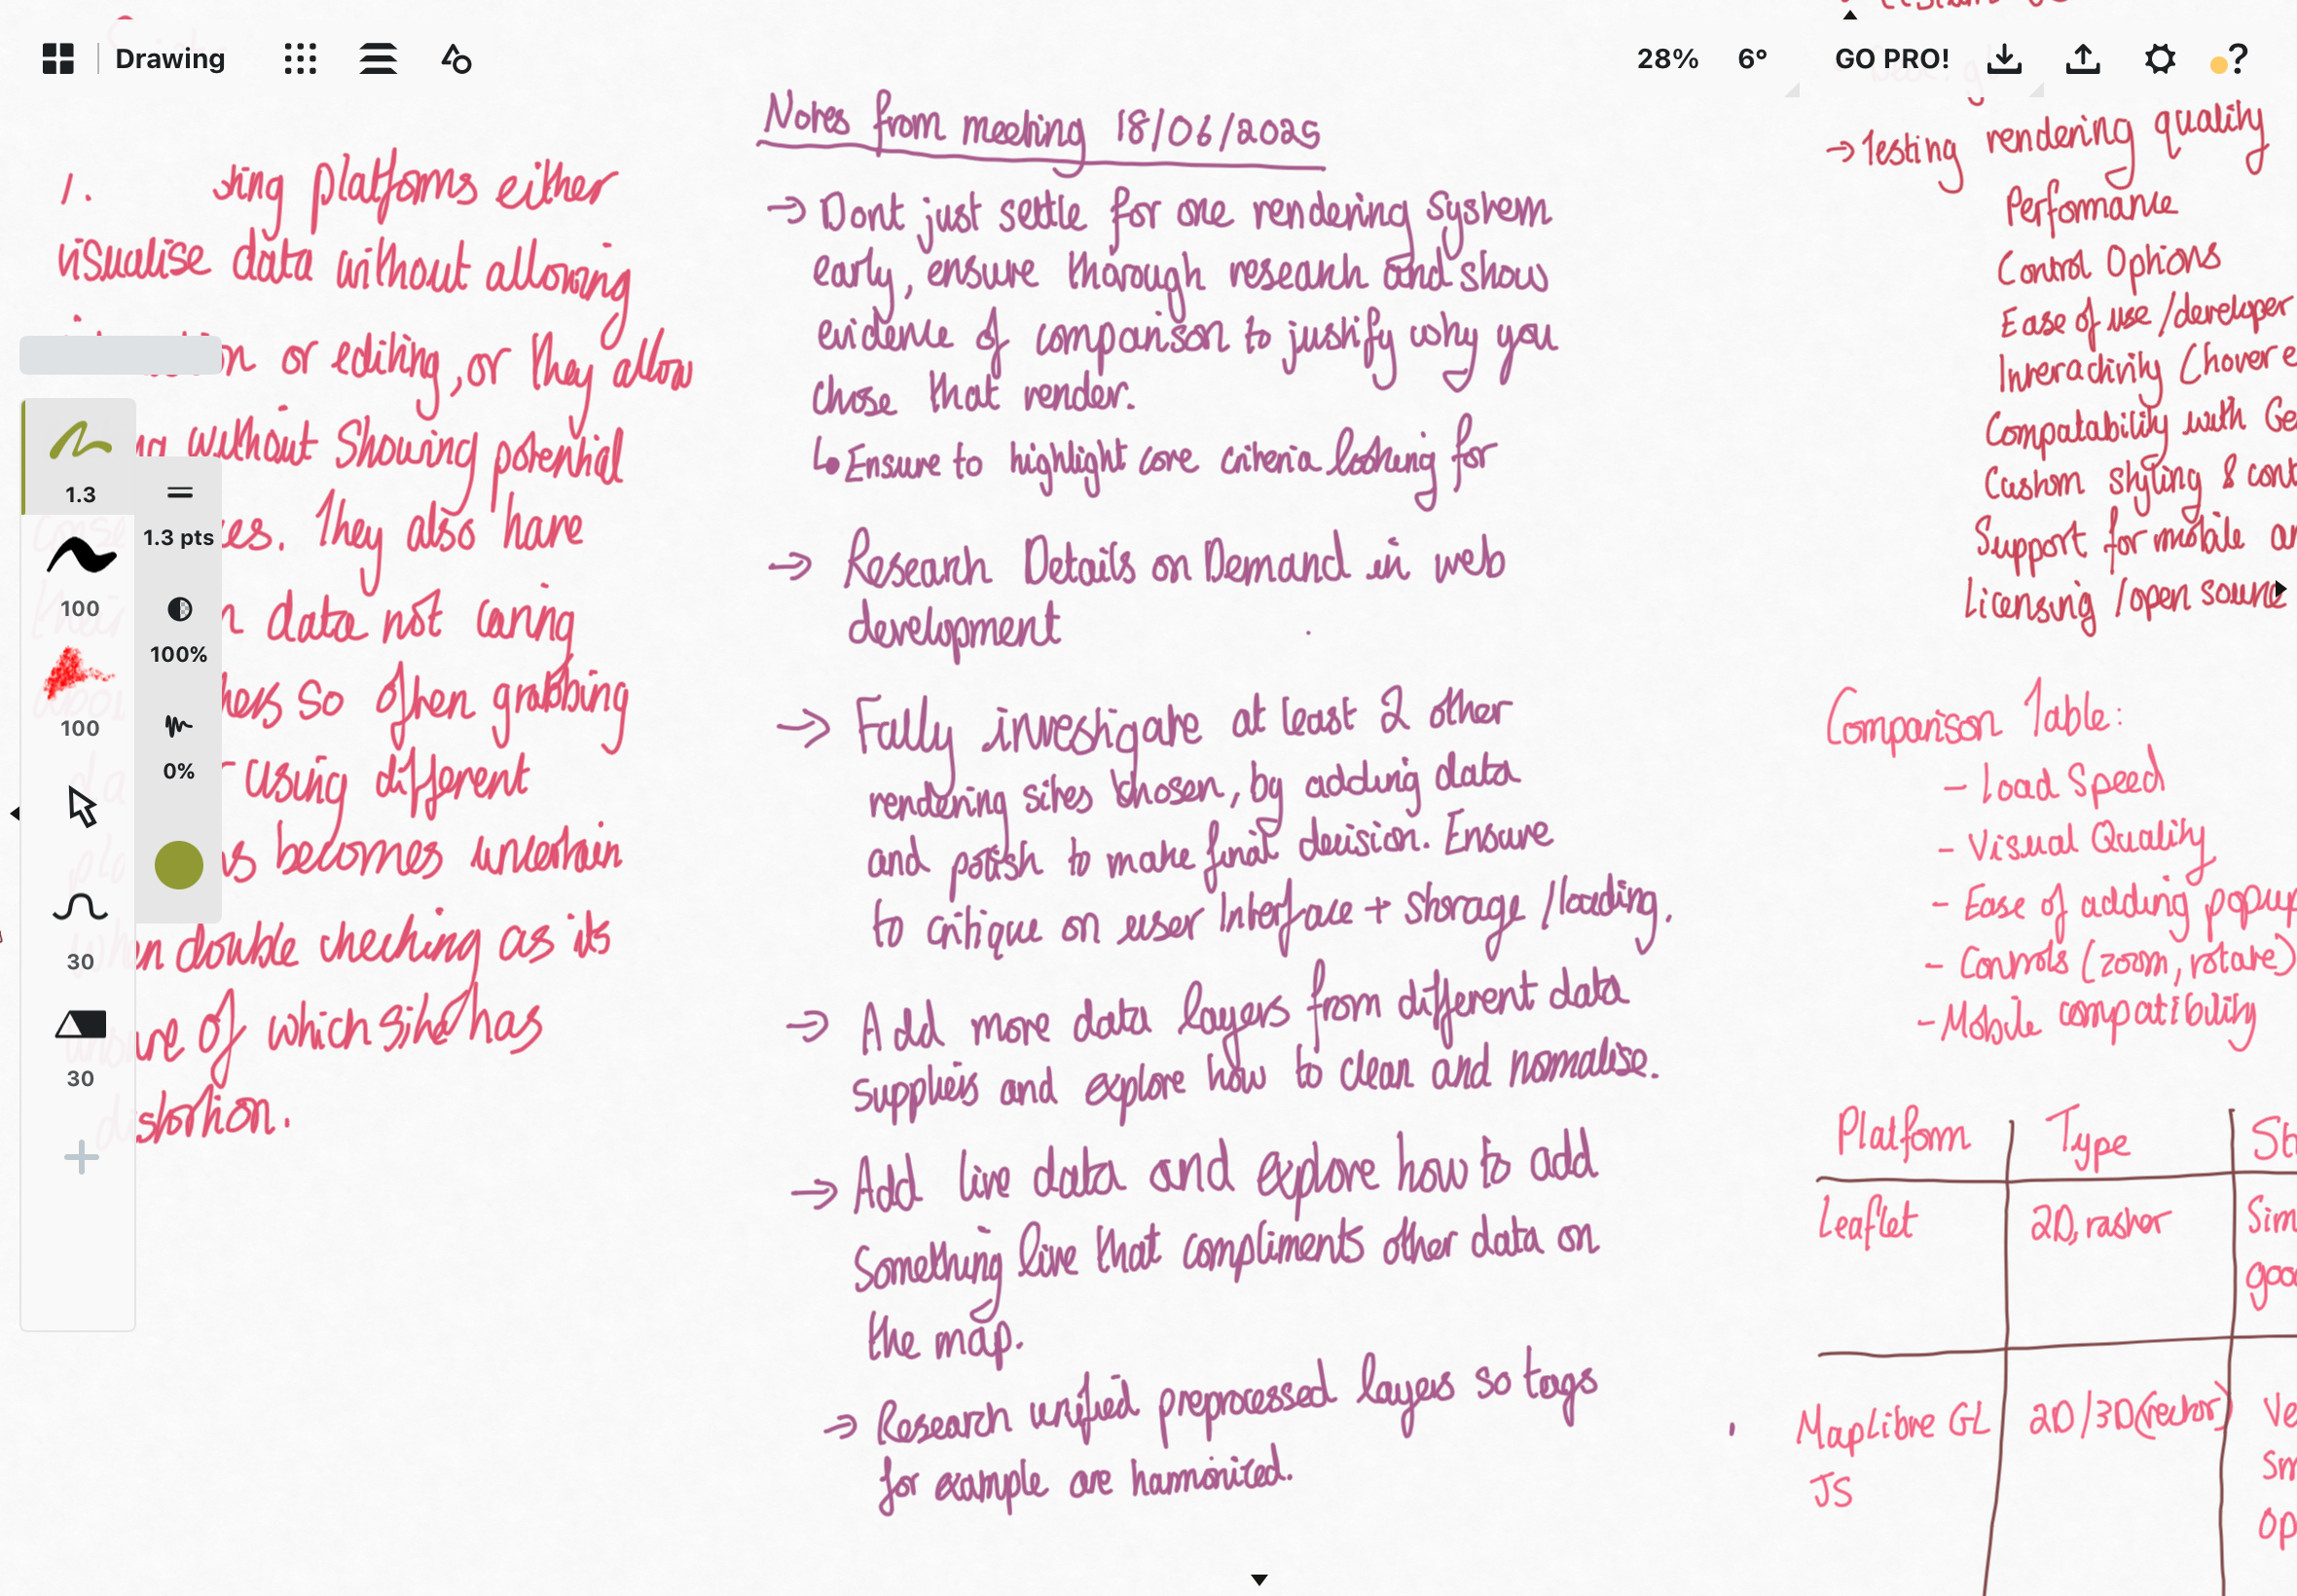 Drawing
28%
6°
GO PRO!
?
1. sting platforms either
visualise data without allowing
on or editing, or they allow
ng without Showing potential
es. They also have
data not caring
so often grabbing
using different
becomes uncertain
when double checking as its
ure of which site has
distortion.
1.3
1.3 pts
100
100%
100
0%
30
30
Notes from meeting 18/06/2025
→ Dont just settle for one rendering system
early, ensure thorough research and show
evidence of comparison to justify why you
chose that render.
↳ Ensure to highlight core criteria looking for
→ Research Details on Demand in web
development
→ Fully investigate at least 2 other
rendering sites chosen, by adding data
and polish to make final decision. Ensure
to critique on user Interface + storage / loading.
→ Add more data layers from different data
suppliers and explore how to clean and normalise.
→ Add live data and explore how to add
Something live that compliments other data on
the map.
→ Research unified preprocessed layers so tags
for example are harmonized.
→ Testing rendering quality
Performance
Control Options
Ease of use / developer
Interactivity (hover e
Compatability with Ge
Custom styling & cont
Support for mobile an
Licensing / open source
Comparison Table:
- Load Speed
- Visual Quality
- Ease of adding popup
- Controls (zoom, rotate)
- Mobile compatibility
Platform Type St
Leaflet 2D, raster Sim
goo
MapLibre GL 2D/3D (vector) Ve
JS Sm
Op